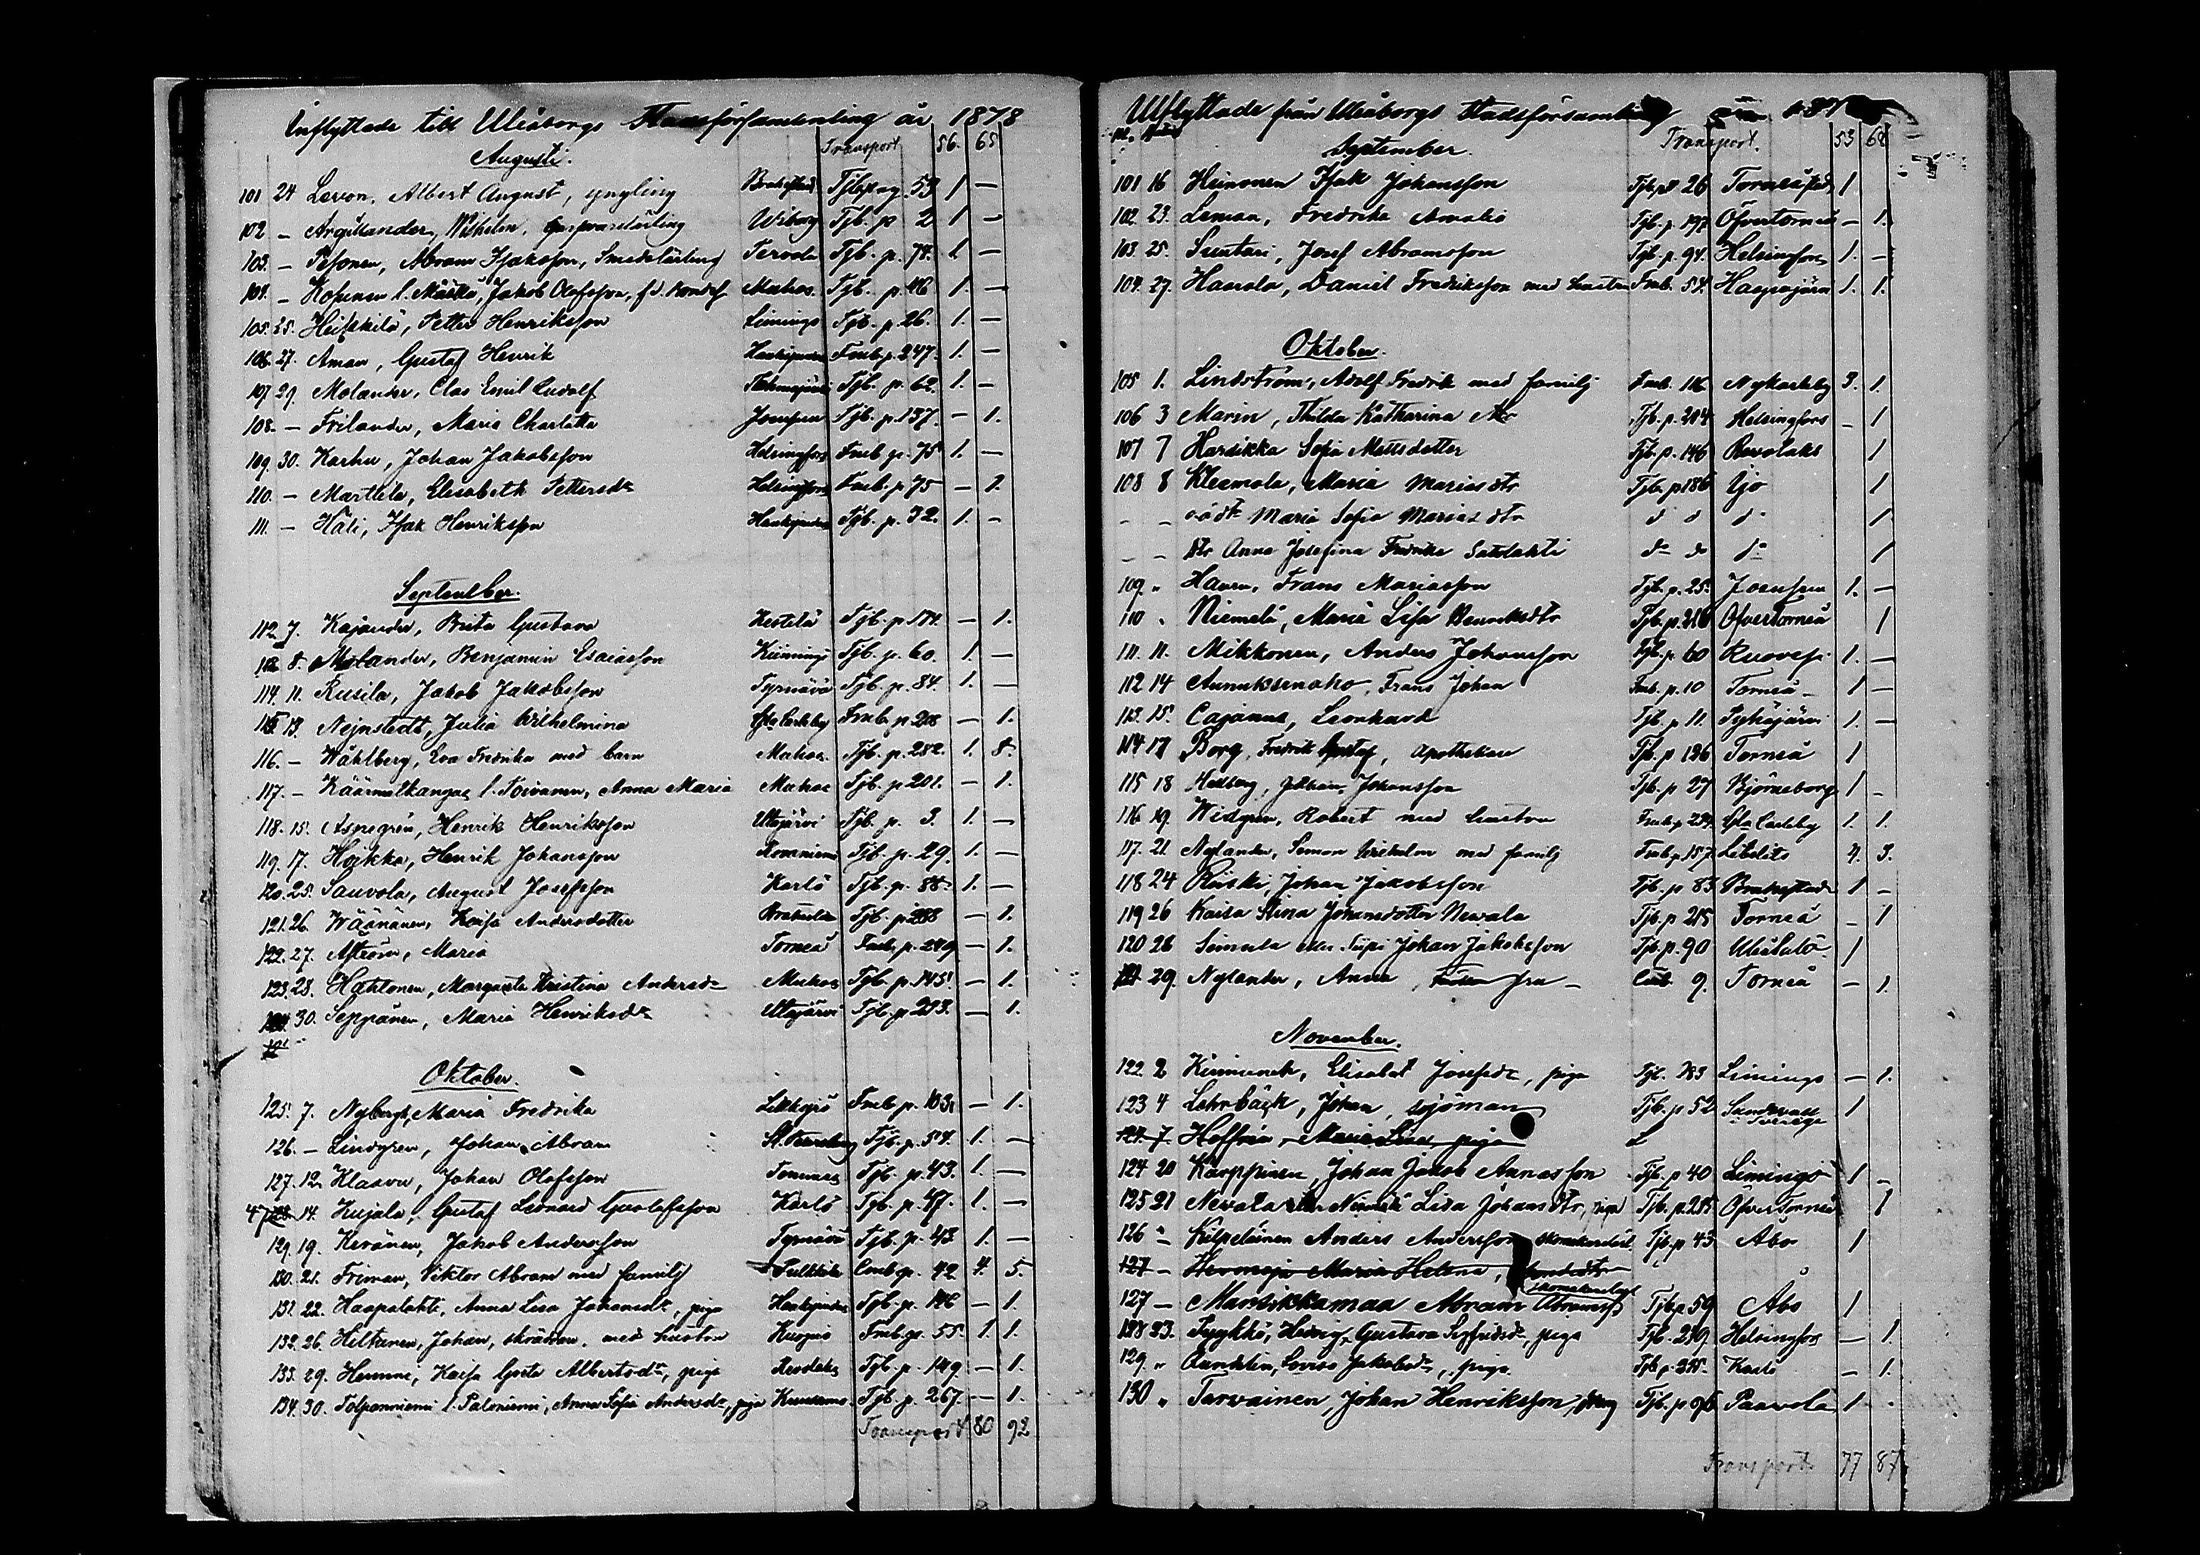 Inflyttade till Uleåborgs Stadsförsamling år 1878
Augusti. Transport 56. 65
101 24 Levon, Albert August, yngling Tjb. pag. 53 1 —
102 — Argillander, Wilhelm, Wiborg Tjb. p 2 1 —
103. — Pesonen, Abram Isaksson, Smedslärling Tervola Tjb. p. 74. 1. —
104. — Kosunen l. Määttä, Jakob Olofsson, f.d. Muhos Tjb. p. 46 1. —
105. 25. Heikkilä, Petter Henriksson Limingo Tjb. p. 26. 1. —
106. 27. Aman, Gustaf Henrik Fmb p. 247. 1. —
107 29. Molander, Clas Emil Rudolf Tjb. p. 62. 1. —
108. — Frilander, Maria Charlotta Joensuu Tjb. p. 137. — 1.
109. 30. Karhu, Johan Jakobsson Helsingfors Fmb p. 75 1. —
110. — Marttila, Elisabeth Pettersdr Helsingfors Fmb. p 75 — 1.
111. — Häli, Isak Henriksson Tjb. p. 32. 1. —
September.
112 7. Kajander, Brita Gustava Kestilä Tjb. p 174. — 1.
113 8. Molander, Benjamin Esaiasson Kiiminge Tjb. p. 60. 1. —
114. 11. Rusila, Jakob Jakobsson Tyrnävä Tjb. p. 84. 1. —
115 13. Nejnstedt, Julia Wilhelmina Gla Carleby Fmb. p 208 — 1.
116. — Wåhlberg, Eva Fredrika med barn Muhos Tjb. p. 282. 1. 8.
117. — Käärmelkangas l. Toivanen, Anna Maria Muhos Tjb. p 201. — 1.
118. 15. Aspegrén, Henrik Henriksson Utajärvi Tjb. p. 3. 1. —
119. 17. Hojkka, Henrik Johansson Rovaniemi Tjb. p. 29. 1. —
120. 25. Sauvola, August Josefsson Karlö Tjb. p. 88. 1. —
121. 26. Wäänänen, Kaisa Andersdotter Tjb. p 288 — 1.
122. 27. Aström, Maria Torneå Fmb. p. 289 — 1.
123. 28. Hahtonen, Margareta Kristina Andersdr Muhos Tjb. p. 145. — 1.
124 30. Seppänen, Maria Henriksdr Utajärvi Tjb. p 293. — 1.
Oktober.
125. 7. Nybergh, Maria Fredrika Fmb p. 103 — 1.
126. — Lindgren, Johan Abram St. Petersburg Tjb. p. 54. 1. —
127. 12 Klaavu, Johan Olofsson Tjb. p. 43. 1. —
47 128 14. Kujala, Gustaf Leonard Gustafsson Karlö Tjb. p. 47. 1. —
129. 19. Keränen, Jakob Andersson Tyrnävä Tjb. p. 43 1. —
130. 21. Friman, Viktor Abram med familj Pulkkila p. 42 4. 5.
131. 22. Haapalahti, Anna Lisa Johansdr, piga Tjb. p. 146 — 1.
132. 26. Hiltunen, Johan, skräddare, med hustru Kuopio Fmb p. 55. 1. 1.
133. 29. Hemme, Kaisa Greta Albertsdr, piga Tjb. p. 149. — 1.
134. 30. Tolpanniemi l. Paloniemi, Anna Sofia Andersdr, piga Kuusamo Tjb. p. 267. — 1.
Transport 80 92
Utflyttade från Uleåborgs Stadsförsamling
September. Transport. 53 62
101 16 Heinonen Isak Johansson Tjb p 26 Torneå 1
102. 23. Leman, Fredrika Amalia Tjb. p. 197 Öfvertorneå — 1.
103. 25. Suutari, Josef Abramsson Tjb. p. 94. Helsingfors 1. —
104. 27. Haarala, Daniel Fredriksson med hustru Fmb. 54. Haapajärvi 1. 1.
Oktober.
105 1. Lindström, Adolf Fredrik med familj Fmb. 116 Nykarleby 3. 1.
106 3 Marin, Thilda Katharina Tjb. p. 204 Helsingfors — 1
107 7 Harsikka Sofia Mattsdotter Tjb. p. 146 Revolaks 1
108 8 Kleemola, Maria Mariasdtr Tjb. p 186 Ijo 1
— — o ä dtr Maria Sofia Mariasdtr d d d 1
— — Dtr Anna Josefina Fredrika Satolahti do do do 1
109. " Hauru, Frans Mariasson Tjb. p. 25. Joensuu 1. —
110 " Niemelä, Maria Lisa Henriksdtr Tjb. p. 216 Öfvertorneå 1
111. 11. Mikkonen, Anders Johansson Tjb. p. 60 Ruovesi 1. —
112 14 Aunuksenaho, Frans Johan Fmb. p. 10 Torneå — 1 —
113. 15. Cajanus, Leonhard Tjb. p 11. Pyhäjärvi 1. —
114 17 Borg, Fredrik Gustaf, Apothekare Tjb. p 136 Torneå 1
115 18 Hedberg, Johan Johansson Tjb. p 27 Björneborg 1 —
116. 19. Widgren, Robert med hustru Fmb. p 234. Gla Carleby 1. 1.
117. 21 Nylander, Simon Wilhelm med familj Fmb p 157 Libelits 4. 3.
118 24 Riiski, Johan Jakobsson Tjb. p 83 Brahestad 1 —
119 26 Kaisa Stina Johansdotter Newala Tjb. p 215 Torneå — 1
120 28 Simula eller Piipi Johan Jakobsson Tjb. p. 90 Uleåsalo 1
121 29. Nylander, Anna, fru — 9. Torneå — 1.
November.
122. 2 Kinnunen, Elisabet Josefsdr, piga Tjb. 183 Limingo — 1.
123 4 Lohrbäck, Johan, sjöman Tjb. p 52 Sundsvall i Sverige 1
124. 7. Hoffrén, Maria Lisa, piga
124 20 Karppinen, Johan Jakob Annasson Tjb. p 40 Limingo 1 —
125 21 Nevala eller Niemelä Lisa Johansdtr, piga Tjb. p. 215 Öfvertorneå 1
126 " Kilpeläinen Anders Andersson Tjb. p 43 Åbo 1
127 — Maria Helena,
127 — Marsikkamaa Abram Abramss Tjb p 59 Åbo 1
128 23. Pyykkö, Hedvig Gustava Sigfridsdr, piga Tjb. 219. Helsingfors — 1.
129. " Rundelin, Lovisa Jakobsdr, piga Tjb. p. 255. Karlö — 1.
130 " Tarvainen, Johan Henriksson, dräng Tjb. p 96 Paavola 1 —
Transport 77 87